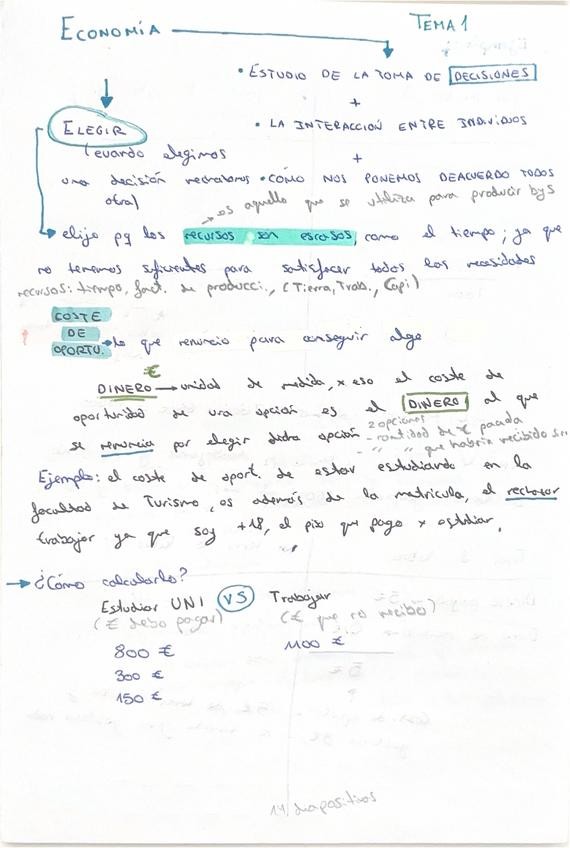 ECONOMÍA
TEMA 1
• ESTUDIO DE LA TOMA DE DECISIONES
+
• LA INTERACCIÓN ENTRE INDIVIDUOS
+
• CÓMO NOS PONEMOS DEACUERDO TODOS
ELEGIR
(cuando elegimos
una decisión rechazamos
otra)
→ es aquello que se utiliza para producir byS
elijo pq los recursos son escasos, como el tiempo; ya que
no tenemos suficientes para satisfacer todas las necesidades
recursos: tiempo, fact. de producci., (Tierra, Trab., Capi)
COSTE
DE
OPORTU. → lo que renuncio para conseguir algo
€
DINERO → unidad de medida, x eso el coste de
oportunidad de una opción es el DINERO al que
se renuncia por elegir dicha opción
2 opciones
- cantidad de € pagada
- " " que habría recibido sin
Ejemplo: el coste de oport. de estar estudiando en la
facultad de Turismo, es además de la matrícula, el rechazar
trabajar ya que soy +18, el piso que pago x estudiar.
→ ¿Cómo calcularlo?
Estudiar UNI VS Trabajar
(€ debo pagar) (€ que no recibo)
800 € 1100 €
300 €
150 €
14 diapositivas